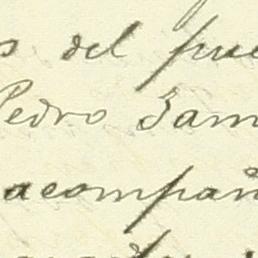 s del pue
Pedro Zam
acompañ